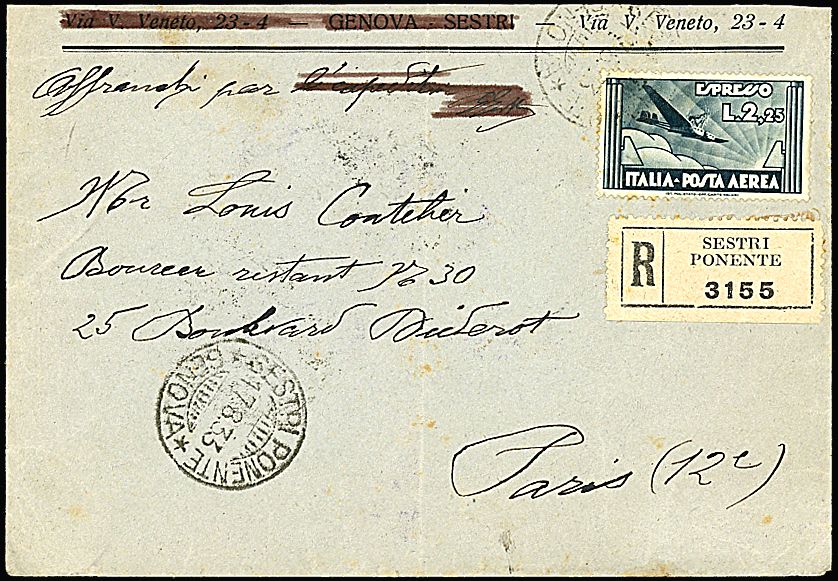 Via V. Veneto, 23 - 4 — GENOVA - SESTRI — Via V. Veneto, 23 - 4
Affranchi par l'expediteur
ESPRESSO
L.2,25
ITALIA - POSTA AEREA
R SESTRI
PONENTE
3155
Mr Louis Coatelier
Bureau restant No 30
25 Boulevard Diderot
Paris (12e)
SESTRI PONENTE * GENOVA *
17.8.33